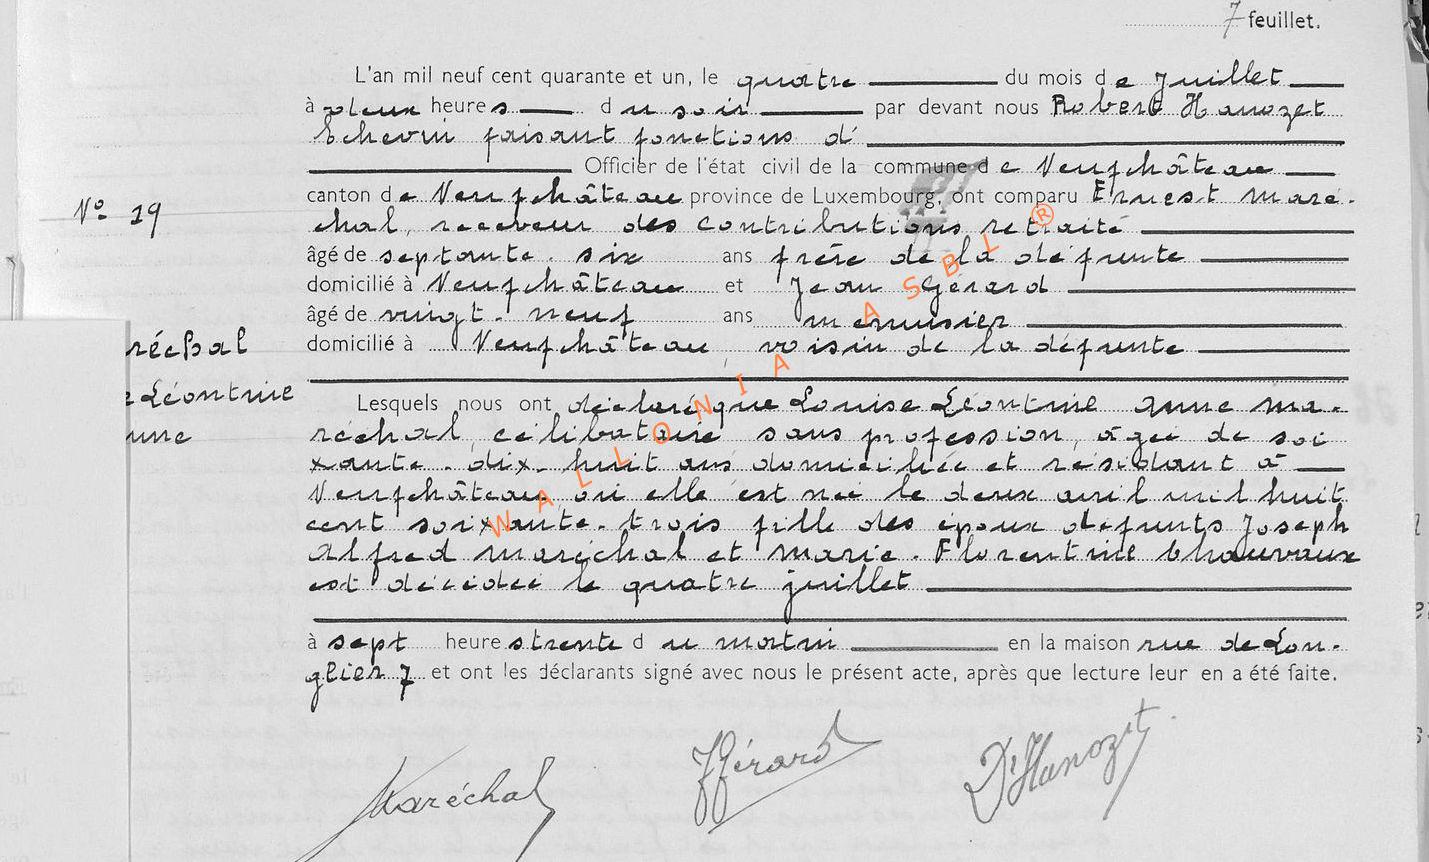 7 feuillet.
L'an mil neuf cent quarante et un, le quatre du mois de Juillet
à deux heures du soir par devant nous Robert Hanozet
Echevin faisant fonctions d'
Officier de l'état civil de la commune de Neufchâteau
canton de Neufchâteau province de Luxembourg, ont comparu Ernest Maré-
N° 19
chal, receveur des contributions retraité
âgé de septante-six ans frère de la défunte
domicilié à Neufchâteau et Jean Gérard
âgé de vingt-neuf ans menuisier
domicilié à Neufchâteau, voisin de la défunte
réchal
e Léontine
nne
Lesquels nous ont déclaré que Louise Léontine Anne Ma-
réchal, célibataire sans profession, âgée de soi
xante-dix-huit ans domiciliée et résidant à
Neufchâteau où elle est née le deux avril mil huit
cent soixante-trois fille des époux défunts Joseph
Alfred Maréchal et Marie-Florentine Chauvaux
est décédée le quatre juillet
à sept heures trente du matin en la maison rue de Lon-
glier 7 et ont les déclarants signé avec nous le présent acte, après que lecture leur en a été faite.
Maréchal JGérard Dr Hanozet
WALLONIA ASBL ®